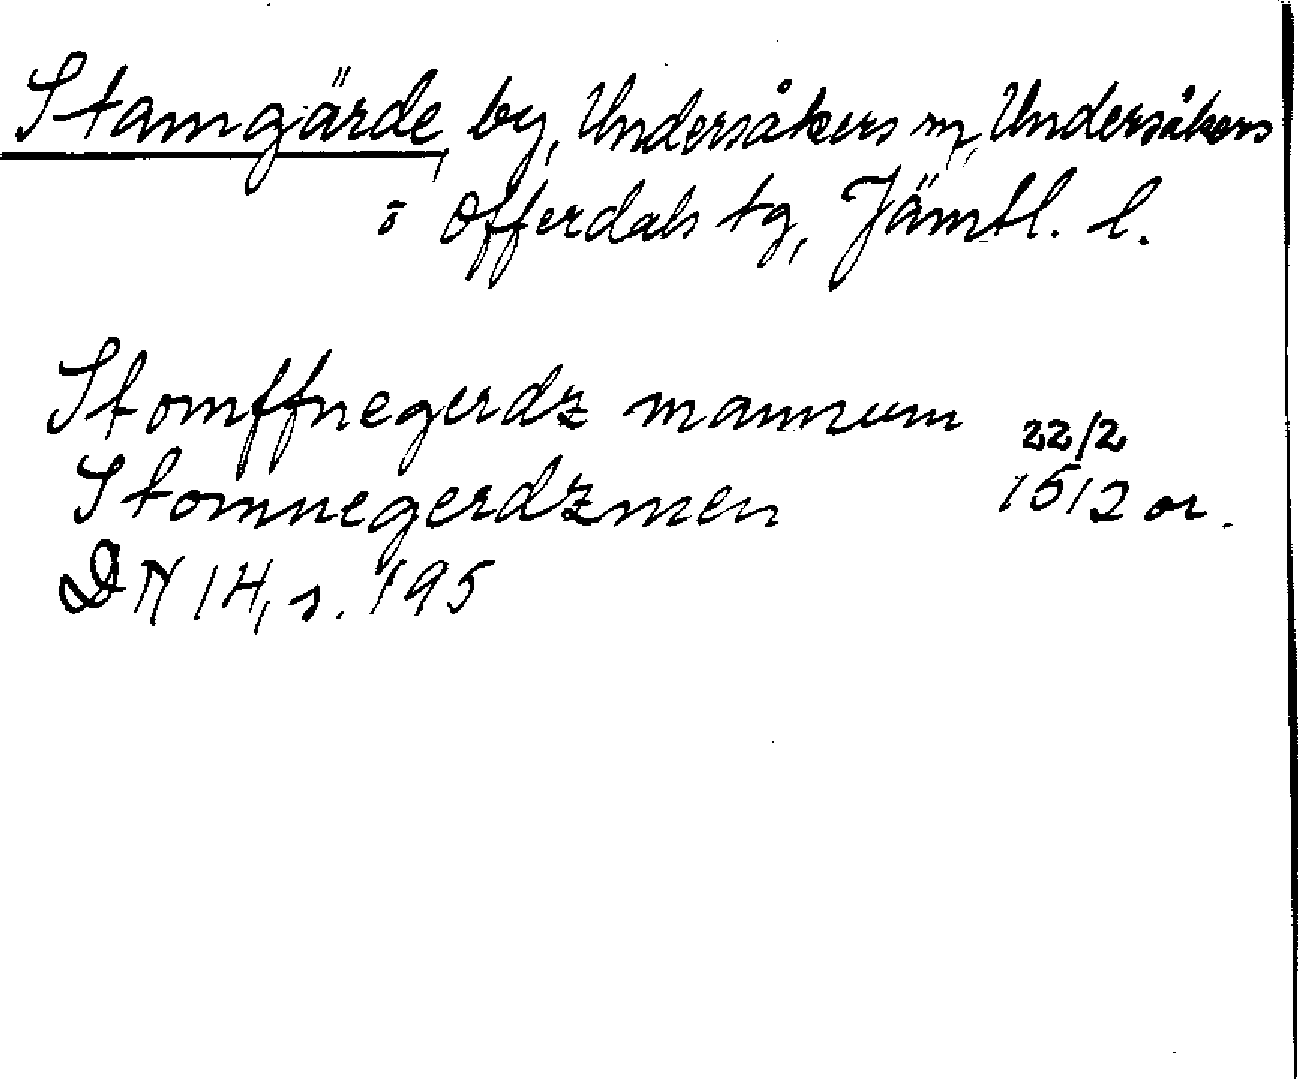 Stamgärde, by, Undersåkers sn, Undersåkers
o Offerdals tg, Jämtl. l.
Stomffnegerdz mannum
22/2
Stomnegerdzmen 1512 or.
DN 14, s. 195